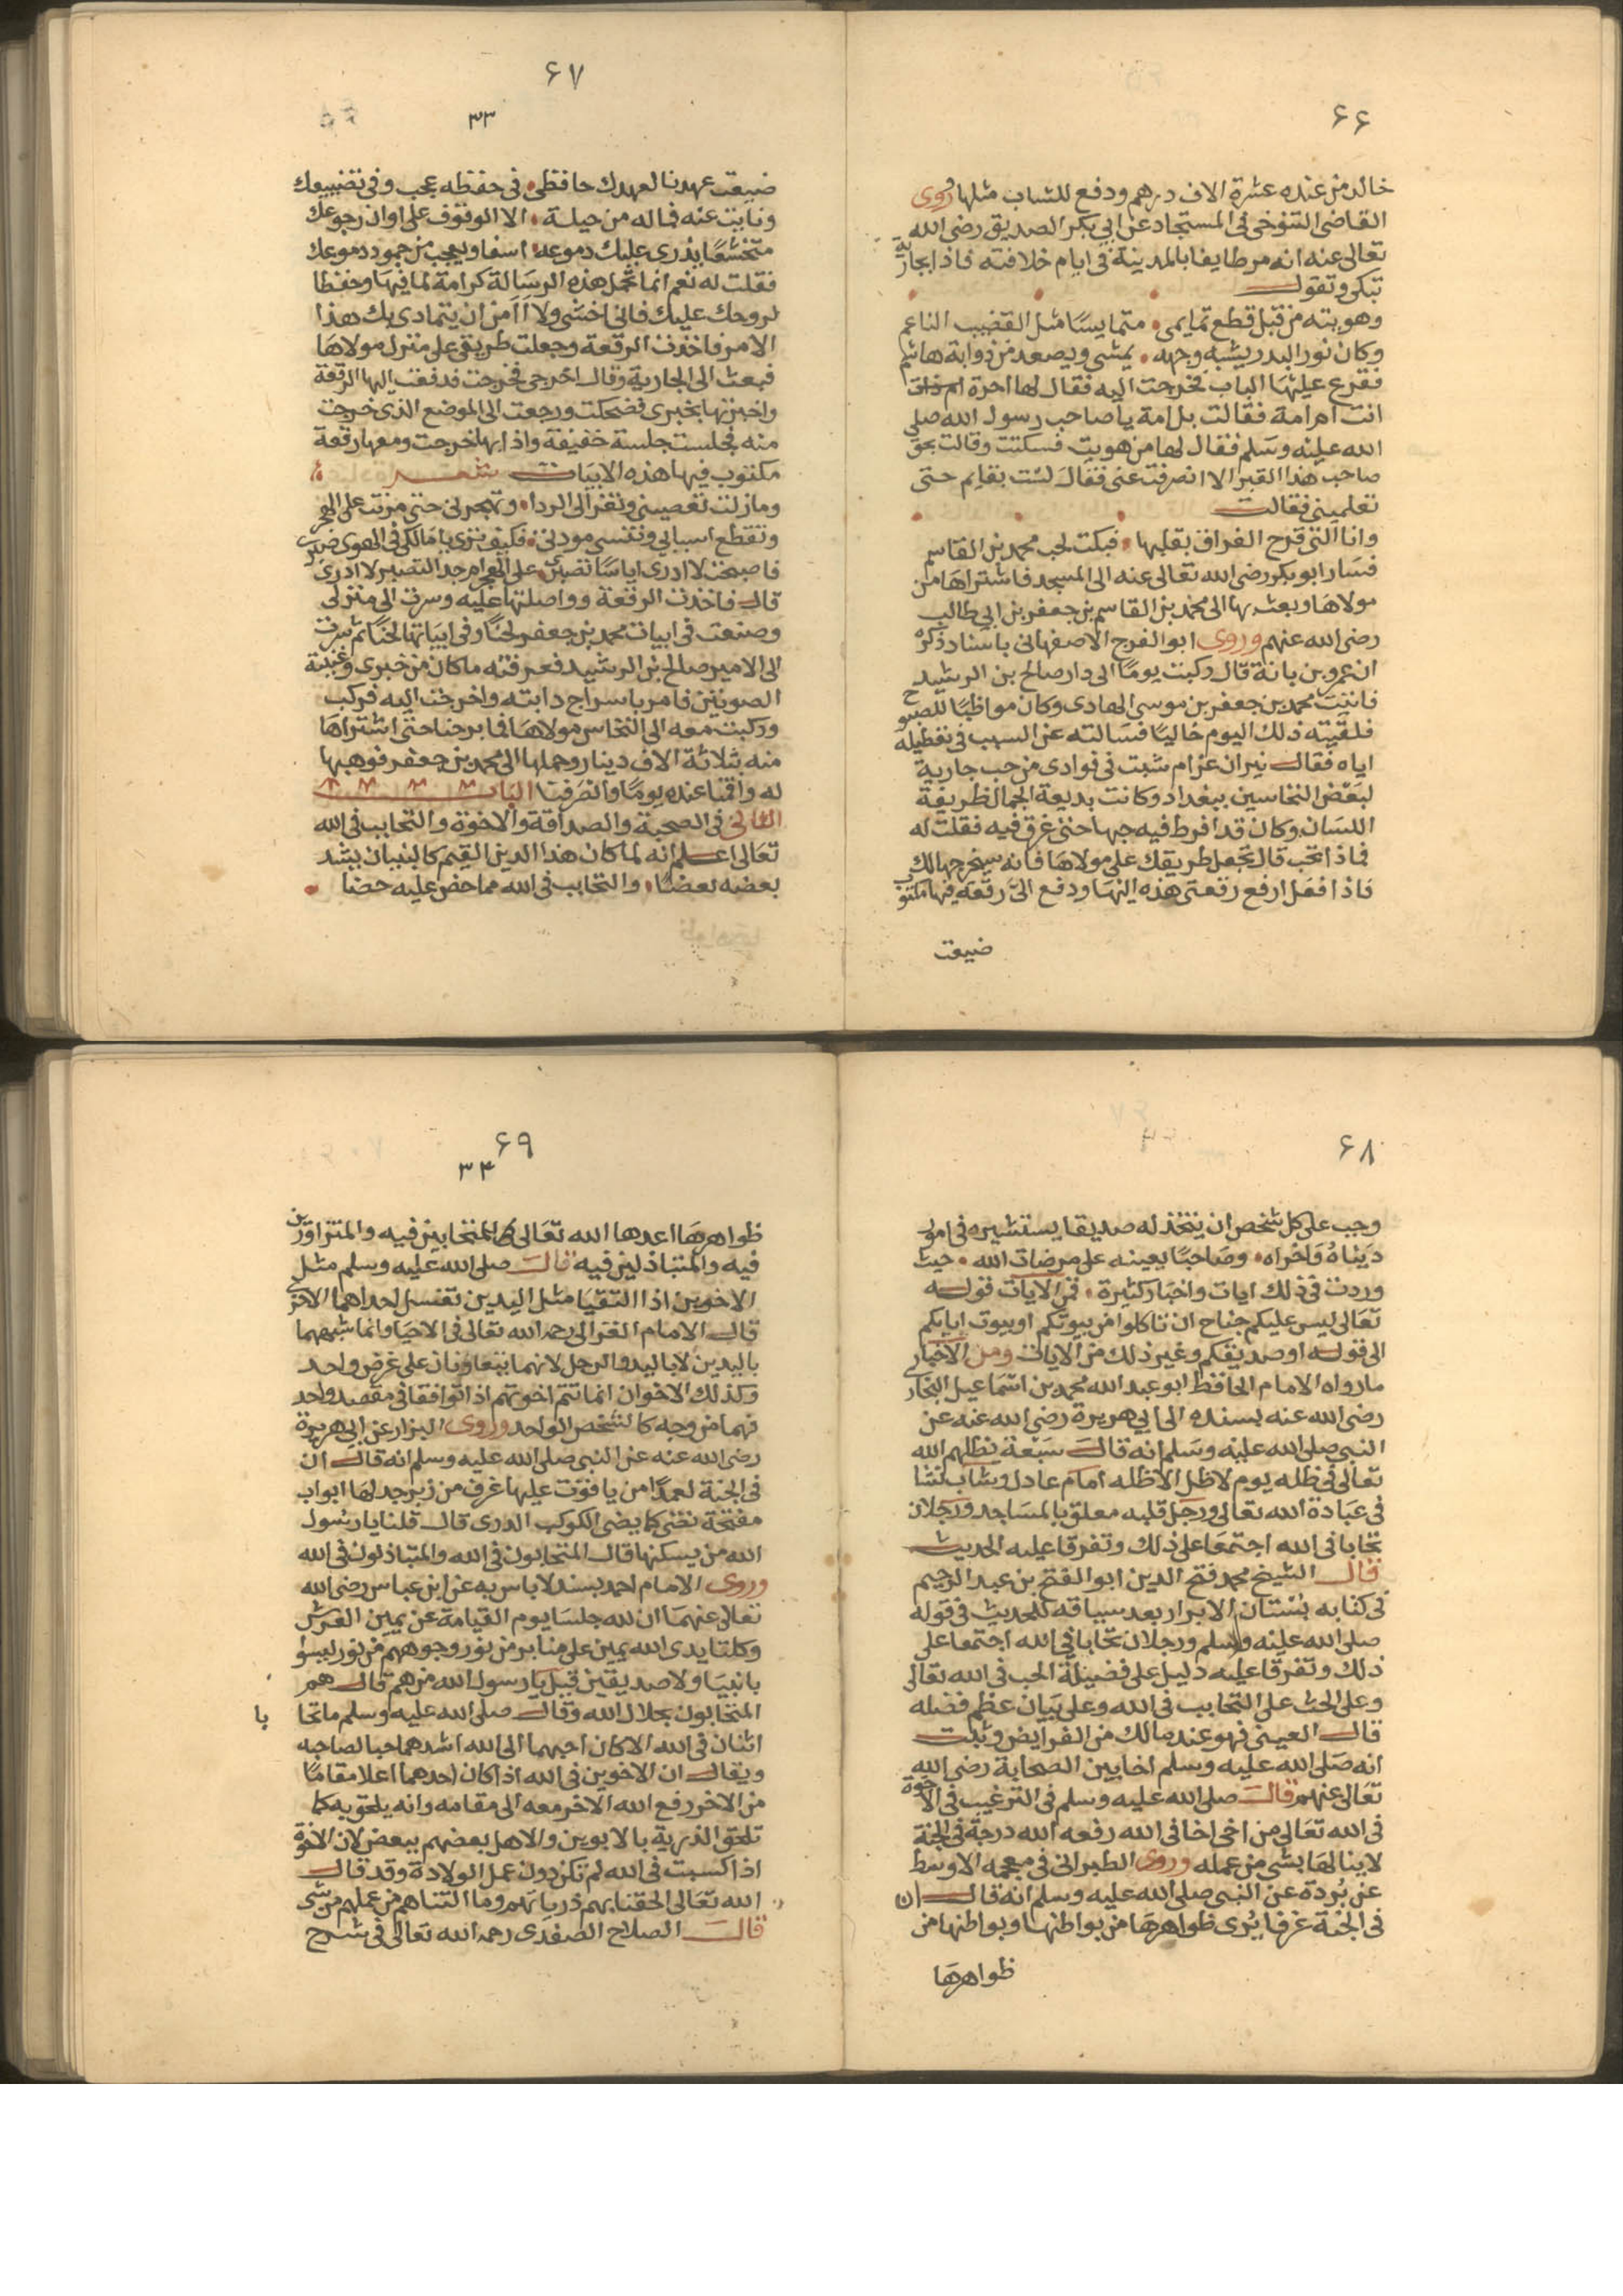 ٦٦
خالد من عنده عشرة الاف درهم ودفع للشاب مثلها وروى
القاضى التنوخى فى المستجاد عن ابى بكر الصديق رضى الله
تعالى عنه انه مر طايفا بالمدينة فى ايام خلافته فاذا بجارية
تبكى وتقول
وهويته من قبل قطع تمايمى متمايسا مثل القضيب الناعم
وكان نور البدر يشبه وجهه يمشى ويصعد من ذوابة هاشم
فقرع عليها الباب فخرجت اليه فقال لها احرة
انت ام امة فقالت بل امة يا صاحب رسول الله صلى
الله عليه وسلم فقال لها من هويت فسكتت وقالت بحق
صاحب هذا القبر الا انصرفت عنى فقال لست بقايم حتى
تعلمينى فقالت
وانا التى قرح الفراق بقلبها فبكت لحب محمد بن القاسم
فسار ابو بكر رضى الله تعالى عنه الى المسجد فاشتراها من
مولاها وبعث بها الى محمد بن القاسم بن جعفر بن ابى طالب
رضى الله عنهم وروى ابو الفرج الاصفهانى باسناد ذكره
ان عمرو بن بانة قال ركبت يوما الى دار صالح بن الرشيد
فاتيت محمد بن جعفر بن موسى الهادى وكان مواظبا للصبوح
فلقيته ذلك اليوم خاليا فسالته عن السبب فى تعطيله
اياه فقال نيران غرام شبت فى فوادى من حب جارية
لبعض النخاسين ببغداد وكانت بديعة الجمال ظريفة
اللسان وكان قد افرط فيه حبها حتى غرق فيه فقلت له
فماذا تحب قال تجعل طريقك على مولاها فانه سيخرجها لك
فاذا فعل ارفع رقعتى هذه اليها ودفع الى رقعة فيها مكتوب
ضيعت
٦٧
٣٣
ضيعت عهدنا لعهدك حافظى فى حفظه عجب وفى تضييعك
ونايت عنه فماله من حيلة الا الوقوف على اوان رجوعك
متخشعا يذرى عليك دموعه اسفا ويعجب من جمود دموعك
فقلت له نعم انما تحمل هذه الرسالة كرامة لما فيها وحفظا
لروحك عليك فانى اخشى ولا اامن ان يتمادى بك هذا
الامر فاخذت الرقعة وجعلت طريقى على منزل مولاها
فبعث الى الجارية وقال اخرجى فخرجت فدفعت اليها الرقعة
واخبرتها بخبرى فضحكت ورجعت الى الموضع الذى خرجت
منه فجلست جلسة خفيفة واذا بها خرجت ومعها رقعة
مكتوب فيها هذه الابيات شعر
ومازلت تعصينى وتغرى الى الردا وتهجرنى حتى مرنت على الهجر
وتقطع اسبابى وتنسى مودتى فكيف ترى يا مالكى فى الهوى صبرى
فاصبحت لا ادرى اياسا تصبرى على الهجر ام جد التصبر لا ادرى
قال فاخذت الرقعة وواصلتها عليه وسرت الى منزلى
وصنعت فى ابيات محمد بن جعفر لحنا وفى ابياتها لحنا ثم سرت
الى الامير صالح بن الرشيد فعرفته ما كان من خبرى وغنيته
الصوتين فامر باسراج دابته واخرجت اليه فركب
وركبت معه الى النخاس مولاها فما برحنا حتى اشتراها
منه بثلاثة الاف دينار وحملها الى محمد بن جعفر فوهبها
له واقمنا عنده يوما وانصرفنا الباب
الثانى فى الصحبة والصداقة والاخوة والتحابب فى الله
تعالى اعلم انه لما كان هذا الدين القيم كالبنيان يشد
بعضه بعضا والتحابب فى الله مما حض عليه حضا
٦٨
وجب على كل شخص ان يتخذ له صديقا يستشيره فى امور
ديناه واخراه وصاحبا يعينه على مرضات الله حيث
وردت فى ذلك ايات واخبار كثيرة فمن الايات قوله
تعالى ليس عليكم جناح ان تاكلوا من بيوتكم او بيوت ابايكم
الى قوله او صديقكم وغير ذلك من الايات ومن الاخبار
مارواه الامام الحافظ ابو عبد الله محمد بن اسماعيل البخارى
رضى الله عنه بسنده الى ابى هريرة رضى الله عنه عن
النبى صلى الله عليه وسلم انه قال سبعة يظلهم الله
تعالى فى ظله يوم لا ظل الا ظله امام عادل وشاب نشا
فى عبادة الله تعالى ورجل قلبه معلق بالمساجد ورجلان
تحابا فى الله اجتمعا على ذلك وتفرقا عليه الحديث
قال الشيخ محمد فتح الدين ابو الفتح بن عبد الرحيم
فى كتابه بستان الابرار بعد سياقه للحديث فى قوله
صلى الله عليه وسلم ورجلان تحابا فى الله اجتمعا على
ذلك وتفرقا عليه دليل على فضيلة الحب فى الله تعالى
وعلى الحث على التحابب فى الله وعلى بيان عظم فضله
قال العينى فهو عند مالك من الفرايض وثبت
انه صلى الله عليه وسلم اخا بين الصحابة رضى الله
تعالى عنهم قال صلى الله عليه وسلم فى الترغيب فى الاخوة
فى الله تعالى من اخى اخا فى الله رفعه الله درجة فى الجنة
لا ينالها بشى من عمله وروى الطبرانى فى معجمه الاوسط
عن بردة عن النبى صلى الله عليه وسلم انه قال ان
فى الجنة غرفا يرى ظواهرها من بواطنها وبواطنها من
ظواهرها
٦٩
٣٤
ظواهرها اعدها الله تعالى للمتحابين فيه والمتزاورين
فيه والمتباذلين فيه قال صلى الله عليه وسلم مثل
الاخوين اذا التقيا مثل اليدين تغسل احداهما الاخرى
قال الامام الغزالى رحمه الله تعالى فى الاحيا وانما شبههما
باليدين لا باليد والرجل لانهما يتعاونان على غرض واحد
وكذلك الاخوان انما تتم اخوتهم اذا توافقا فى مقصد واحد
فهما من وجه كالشخص الواحد وروى البزار عن ابى هريرة
رضى الله عنه عن النبى صلى الله عليه وسلم انه قال ان
فى الجنة لعمدا من ياقوت عليها غرف من زبرجد لها ابواب
مفتحة تضى كما يضى الكوكب الدرى قال قلنا يا رسول
الله من يسكنها قال المتحابون فى الله والمتباذلون فى الله
وروى الامام احمد بسند لاباس به عن ابن عباس رضى الله
تعالى عنهما ان لله جلسا يوم القيامة عن يمين العرش
وكلتا يدى الله يمين على منابر من نور وجوههم من نور ليسوا
بانبيا ولا صديقين قيل يا رسول الله من هم قال هم
المتحابون بجلال الله وقال صلى الله عليه وسلم ما تحا
با
اثنان فى الله الا كان احبهما الى الله اشدهما حبا لصاحبه
ويقال ان الاخوين فى الله اذا كان احدهما اعلا مقاما
من الاخر رفع الله الاخر معه الى مقامه وانه يلحق به كما
تلحق الذرية بالابوين والاهل بعضهم ببعض لان الاخوة
اذا كسبت فى الله لم تكن دون عمل الولادة وقد قال
الله تعالى الحقنا بهم ذرياتهم وما التناهم من عملهم من شى
قال الصلاح الصفدى رحمه الله تعالى فى شرح